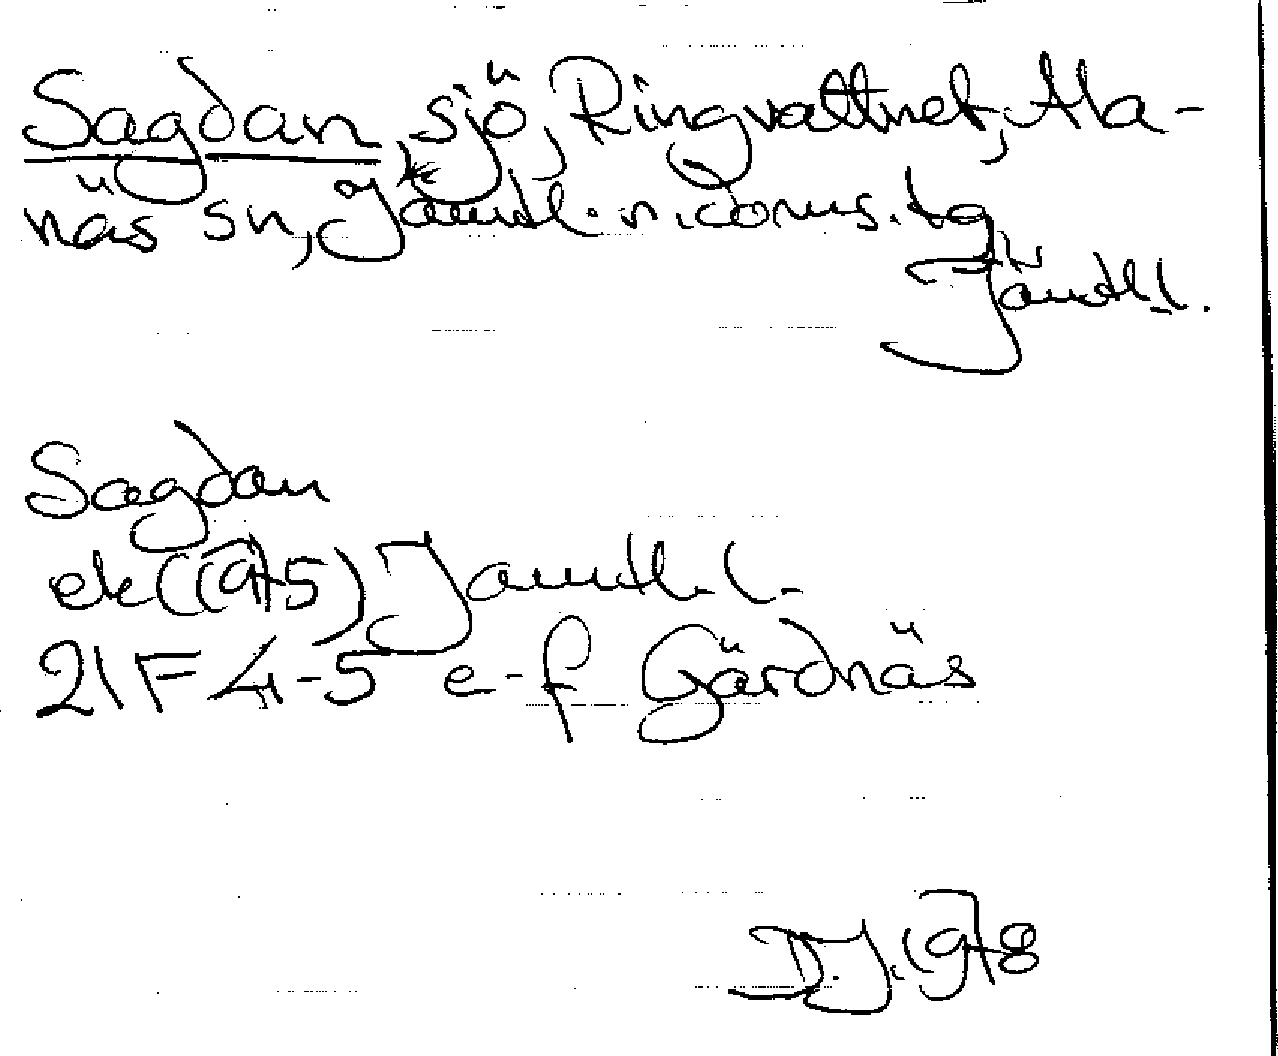 Sagdan, sjö, Ringvattnet, Ala-
näs sn, Jämtl. n. doms. tg
Jämtl.l.
Sagdan
ek (1975) Jämtl. l.
21F 4-5 e-f Gärdnäs
D.J. 1978